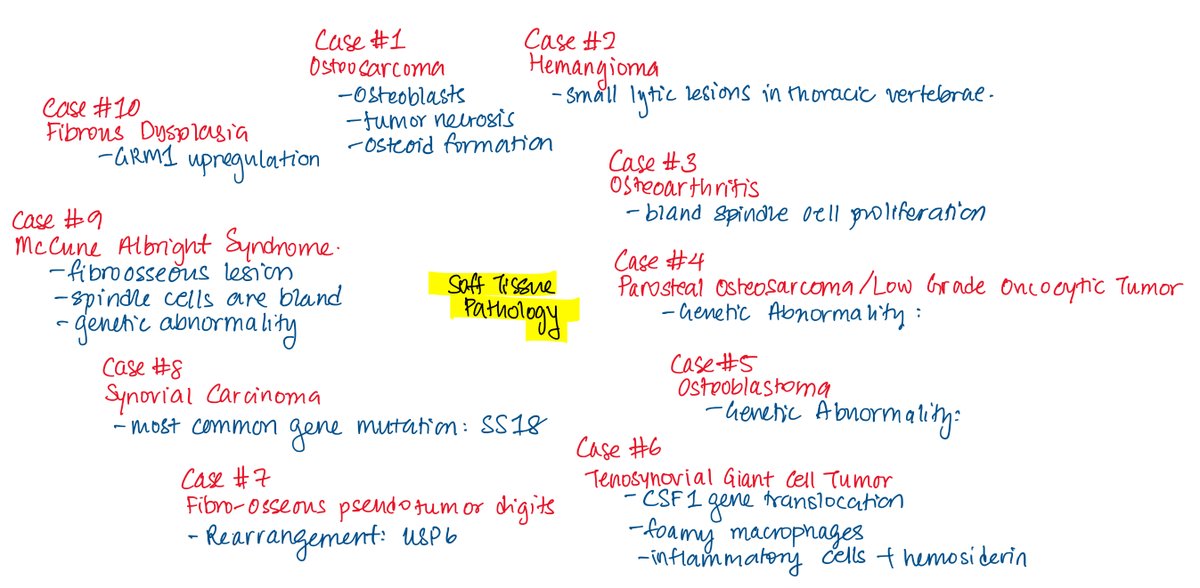 Case #1
Osteosarcoma
- Osteoblasts
- tumor necrosis
- Osteoid formation
Case #2
Hemangioma
- small lytic lesions in thoracic vertebrae.
Case #3
Osteoarthritis
- bland spindle cell proliferation
Case #4
Parosteal Osteosarcoma/Low Grade Oncocytic Tumor
- Genetic Abnormality :
Case #5
Osteoblastoma
- Genetic Abnormality:
Case #6
Tenosynovial Giant Cell Tumor
- CSF1 gene translocation
- foamy macrophages
- inflammatory cells + hemosiderin
Case #7
Fibro-osseous pseudotumor digits
- Rearrangement: USP6
Case #8
Synovial Carcinoma
- most common gene mutation: SS18
Case #9
McCune Albright Syndrome.
- fibroosseous lesion
- spindle cells are bland
- genetic abnormality
Case #10
Fibrous Dysplasia
- GRM1 upregulation
Soft Tissue
Pathology